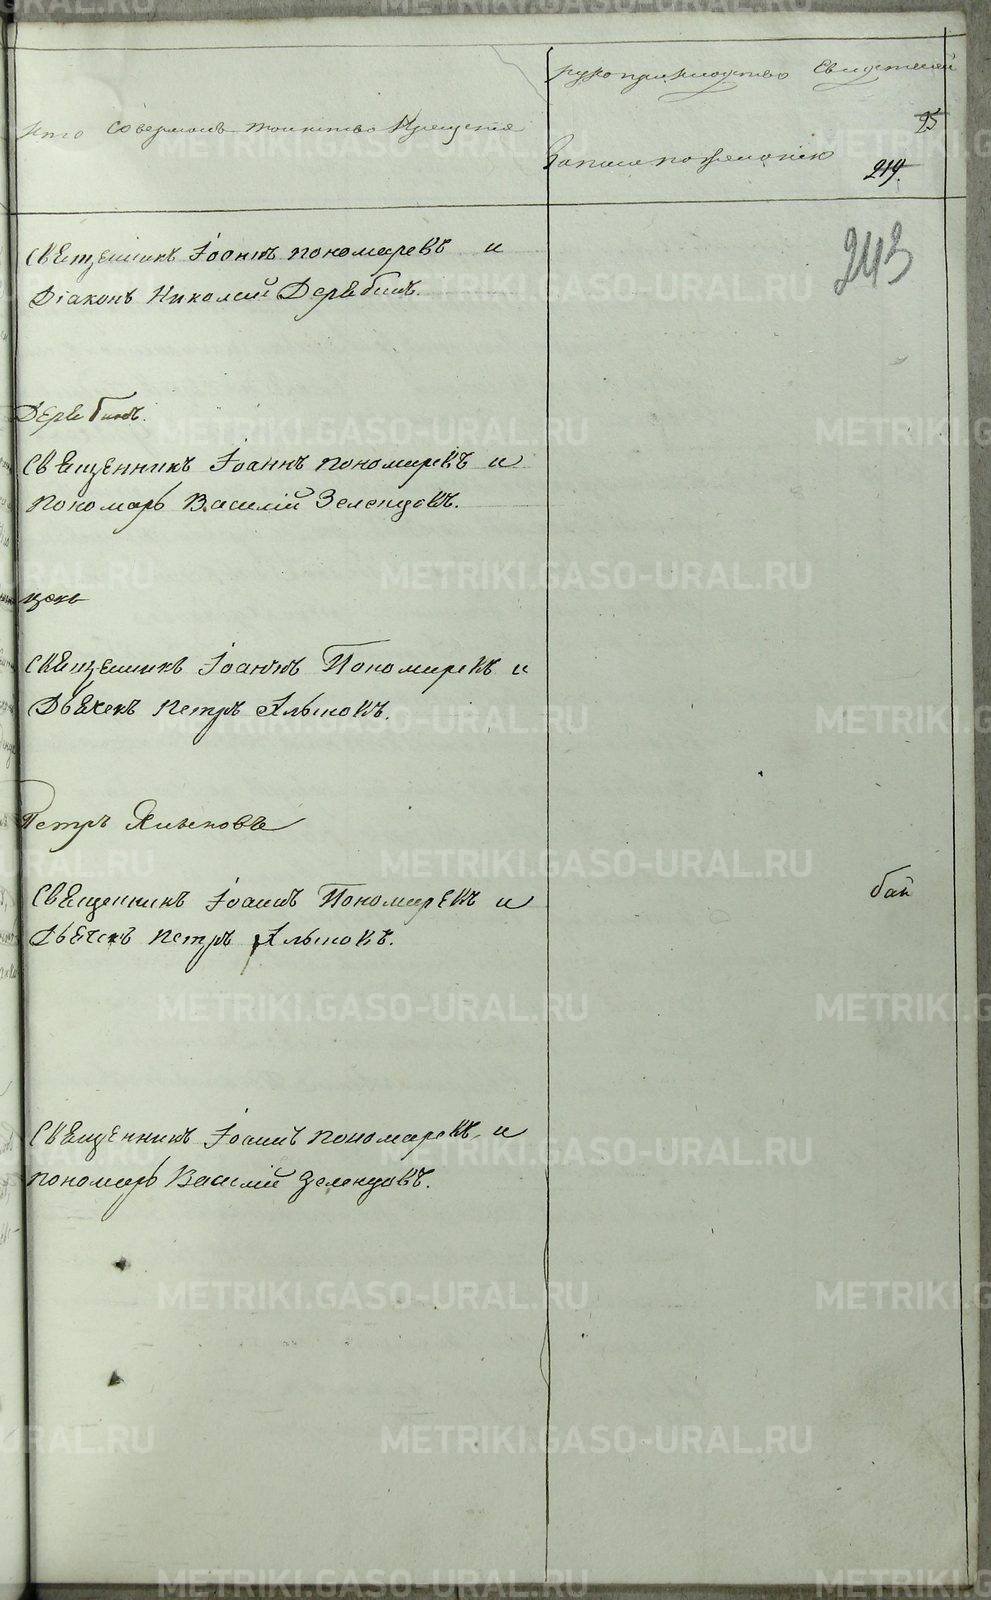 Кто совершалъ таинство Крещенія
рукоприкладство свидѣтелей
записи по желанію
95
219.
243
Священникъ Іоаннъ Пономаревъ и
Діаконъ Николай Дерябинъ.
Дерябинъ.
Священникъ Іоаннъ Пономаревъ и
Пономарь Василій Зеленцовъ.
Священникъ Іоаннъ Пономаревъ и
Дьячекъ Петръ Альшовъ.
Петръ
Священникъ Іоаннъ Пономаревъ и
Дьячекъ Петръ Альшовъ.
бай
Священникъ Іоаннъ Пономаревъ и
Пономарь Василій Зеленцовъ.
METRIKI.GASO-URAL.RU